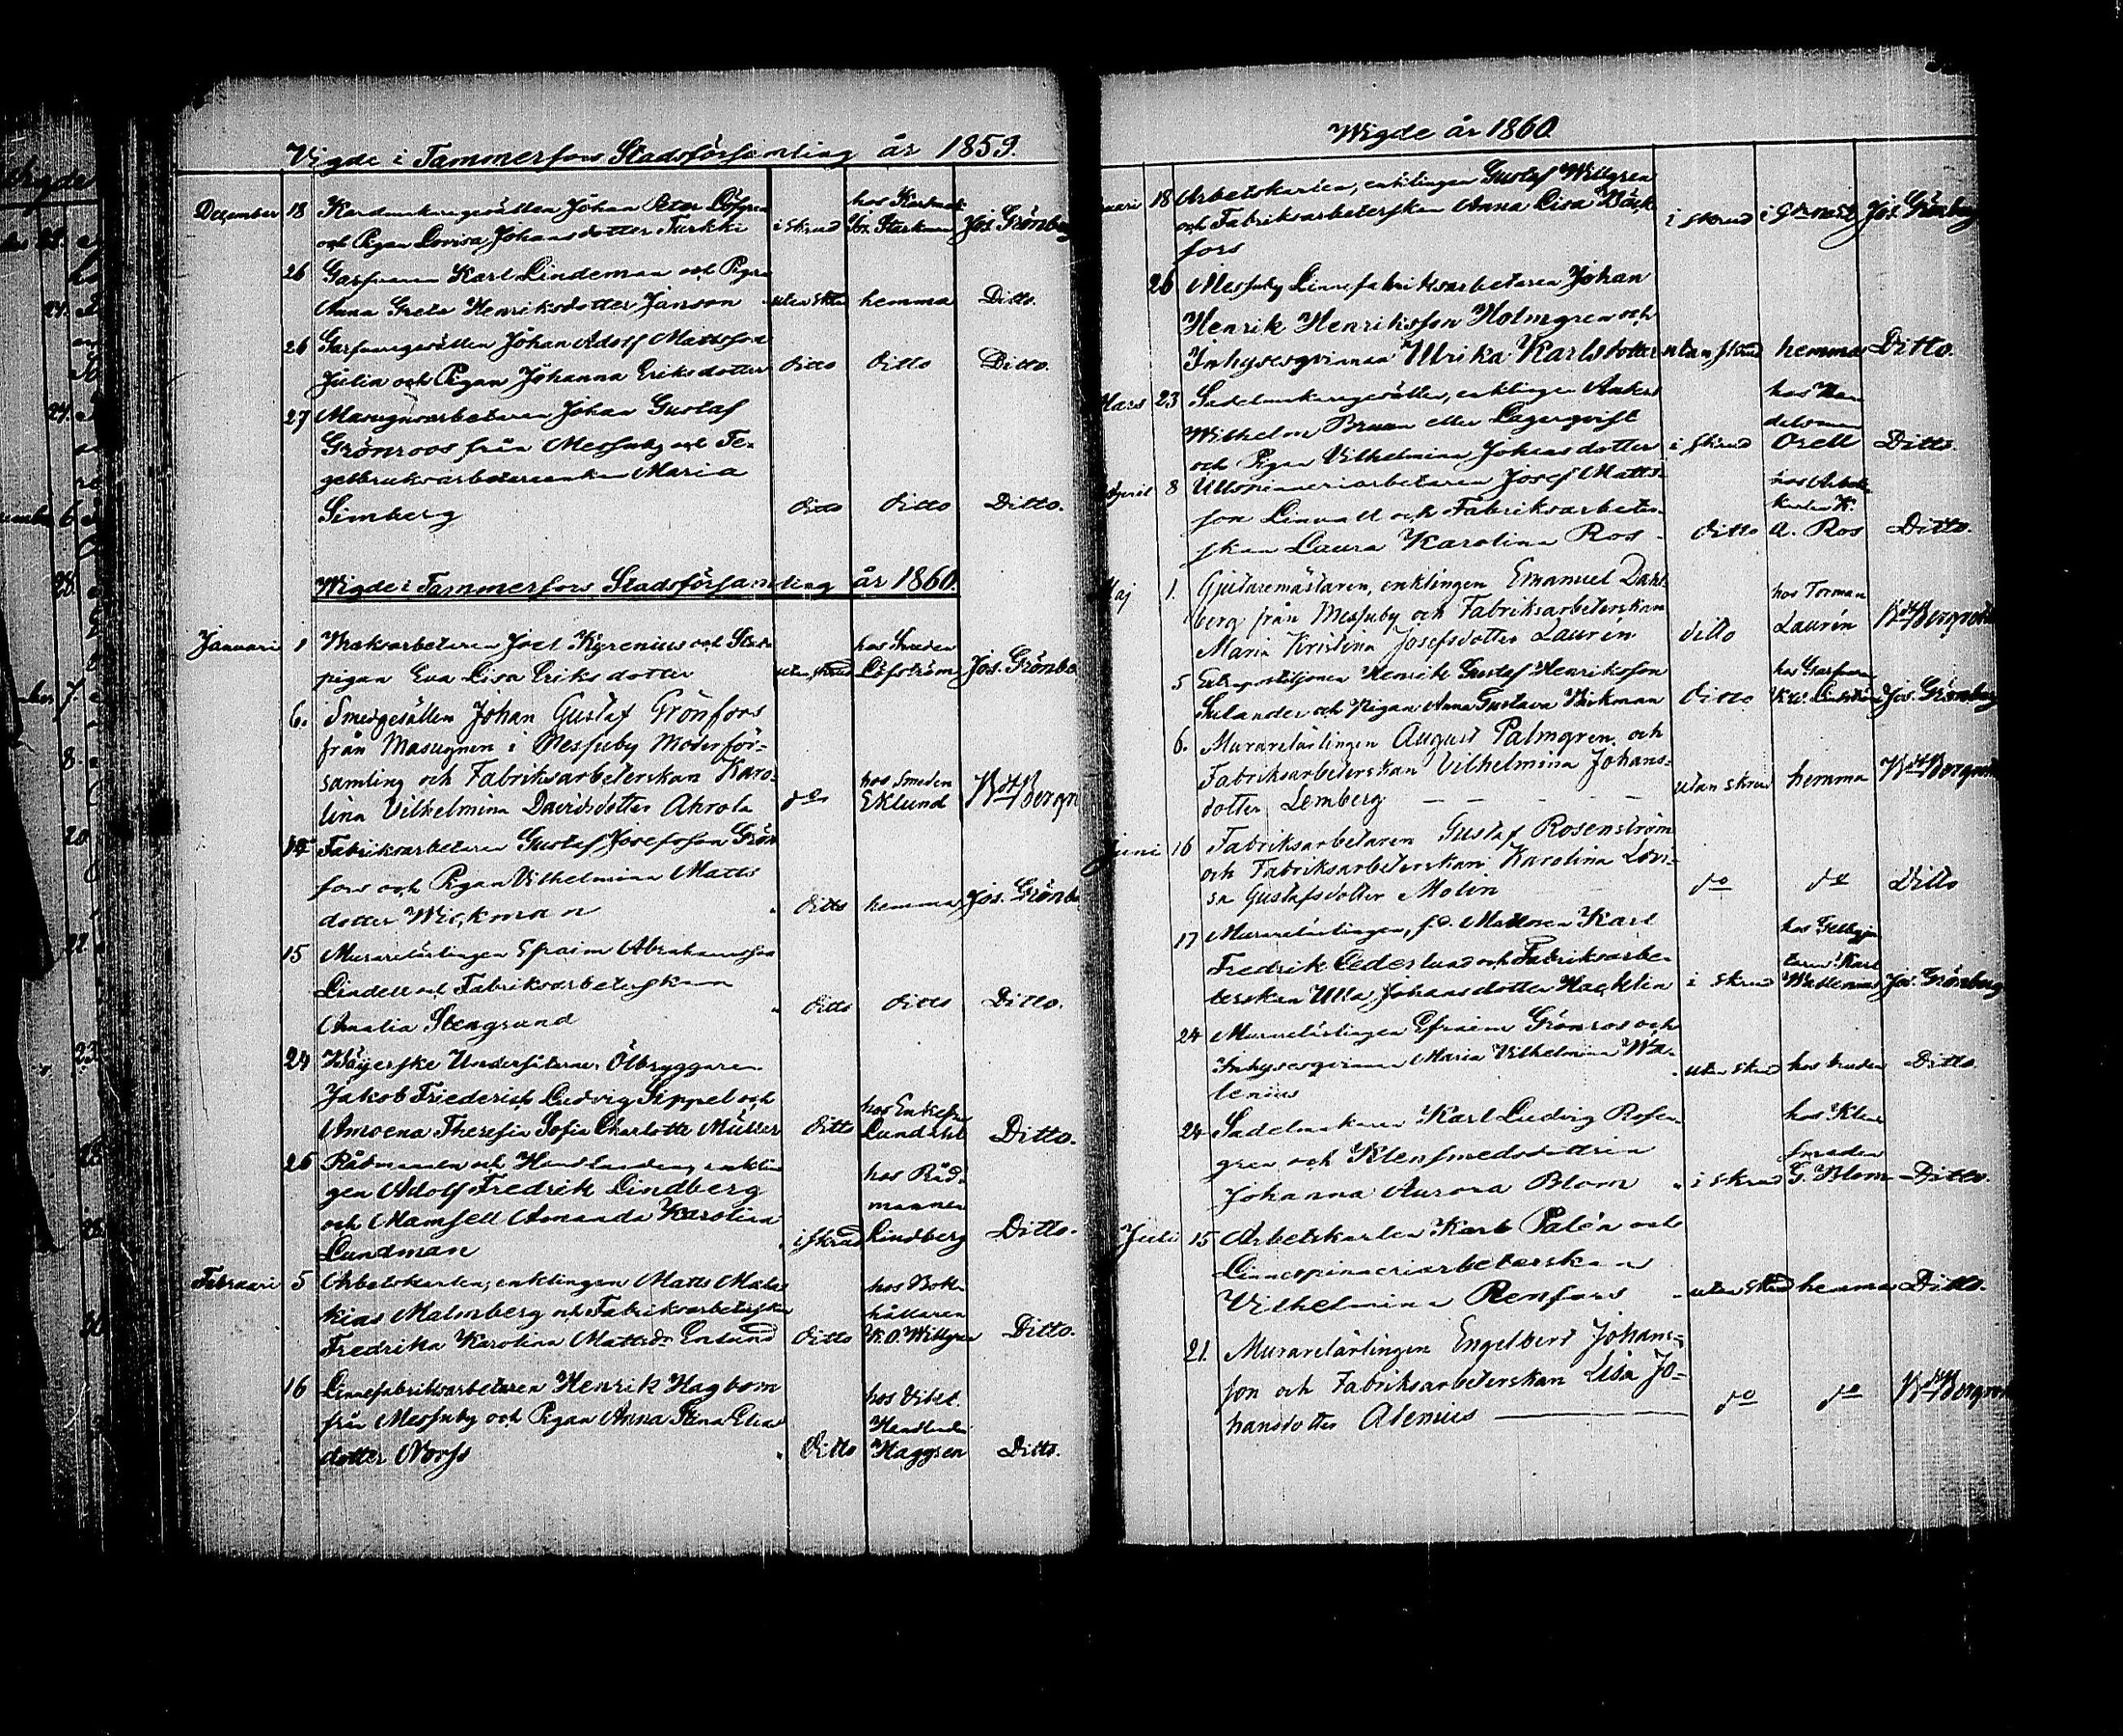 Vigde i Tammerfors Stadsförsamling år 1859.
December 18 Kardmakaregesällen Johan Peter Löfgren
och Pigan Lovisa Johansdotter Turkki i skrud Jos. Grönberg
26 Garfvaren Karl Lindeman och Pigan
Anna Greta Henriksdotter Janson utan skrud hemma Ditto.
26 Garfvaregesällen Johan Adolf Mattsson
Julin och Pigan Johanna Eriksdotter Ditto Ditto Ditto.
27 Masugnsarbetaren Johan Gustaf
Grönroos från Messuby och Te-
gelbruksarbetareenkan Maria
Simberg Ditto Ditto Ditto.
Wigde i Tammerfors Stadsförsamling år 1860.
Januari 1 Joel Kyrenius och
hos Smeden
pigan Eva Lisa Eriksdotter utan skrud Löfström Jos. Grönbe
6. Smedgesällen Johan Gustaf Grönfors
från Masugnen i Messuby Moderför-
samling och Fabriksarbeterskan Karo-
hos Smeden
lina Vilhelmina Davidsdotter Ahrola do Eklund
Fabriksarbetaren Gustaf Josefsson Grön
fors och Pigan Vilhelmina Matts
dotter Wickman Ditto hemma Jos. Grönbe
15 Murarelärlingen Efraim Abrahamsson
Lindell och Fabriksarbeterskan
Amalia Stengrund Ditto Ditto Ditto.
24 Undersåtarne, Ölbryggaren
Jakob Friederich Ludvig Sippel och
Amoena Theresia Sofia Charlotte Müller Ditto hos Enkefru Lundahl Ditto.
26 Rådmannen och Handlanden, enklin
gen Adolf Fredrik Lindberg hos Råd-
och Mamsell Amanda Karolina mannen
Lundman i skrud Lindberg Ditto.
Februari 5 Arbetskarlen, enklingen Matts Mala hos Bok-
kias Malmberg och Fabriksarbeterskan hållaren
Fredrika Karolina Mattsdr Enlund Ditto K.O. Willgren Ditto.
16 Linnefabriksarbetaren Henrik Hagbom
från Messuby och Pigan Anna Stina Elias Handlanden
dotter Norss Ditto Haggren Ditto.
Wigde år 1860
uari 18 Arbetskarlen, enklingen Gustaf Willgren
och Fabriksarbeterskan Anna Lisa Bäck i skrud Jos. Grönberg
fors
26 Messuby Linnefabriksarbetaren Johan
Henrik Henriksson Holmgren och
Inhysesqvinnan Ulrika Karlsdotter utan skrud hemma Ditto.
Mars 23 Sadelmakaregesällen, enklingen Anders hos Han
Wilhelm Bruun eller Lagerqvist delsman
och Pigan Vilhelmina Johansdotter i skrud Orell Ditto.
April 8 Ullspinneriarbetaren Josef Matts- hos Arbets-
son Linvall och Fabriksarbeter- karlen K.
skan Laura Karolina Ros Ditto A. Ros Ditto.
Maj 1. Gjutaremästaren, enklingen Emanuel Dahl
berg från Messuby och Fabriksarbeterskan hos Torman
Maria Kristina Josefsdotter Laurén ditto Laurén
5 Extrapostiljonen Henrik Gustaf Henriksson hos Garfvaren
Sulander och Pigan Anna Gustava Wickman Ditto Jos. Grönberg
6. Murarelärlingen August Palmgren och
Fabriksarbeterskan Vilhelmina Johans-
dotter Lemberg utan skrud hemma
Juni 16 Fabriksarbetaren Gustaf Rosenström
och Fabriksarbeterskan Karolina Lovi-
sa Gustafsdotter Molin do do Ditto
17 Murarelärlingen, f.d. Matrosen Karl
Fredrik Cederlund och Fabriksarbe-
terskan Ulla Johansdotter Hacklin i skrud Jos. Grönberg
24 Murarelärlingen Efraim Grönros och
Inhysesqvinnan Maria Vilhelmina Wa- utan skrud hos bruden Ditto.
lenius
24 Sadelmakaren Karl Ludvig Rosen- hos Klen
gren och Klensmedsdottren smeden
Johanna Aurora Blom i skrud G. Blom Ditto.
Juli 15 Arbetskarlen Karl Palén och
Linnespinneriarbeterskan
Vilhelmina Renfors utan skrud hemma Ditto.
21. Murarelärlingen Engelbert Johans-
son och Fabriksarbeterskan Lisa Jo-
hansdotter Alenius do do